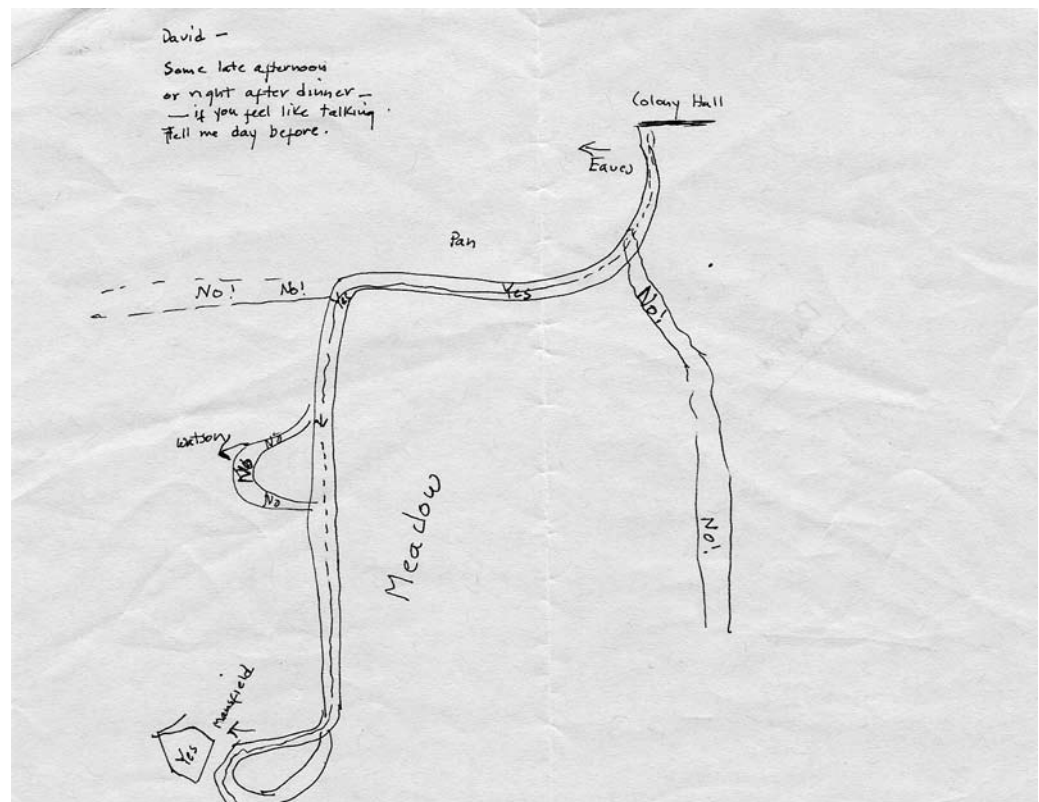 David —
Some late afternoon
or right after dinner —
— if you feel like talking.
Tell me day before.
Colony Hall
Eaves
Pan
No! No!
Yes
Yes
No!
Watson
No
No
No
No!
Meadow
Mansfield
Yes